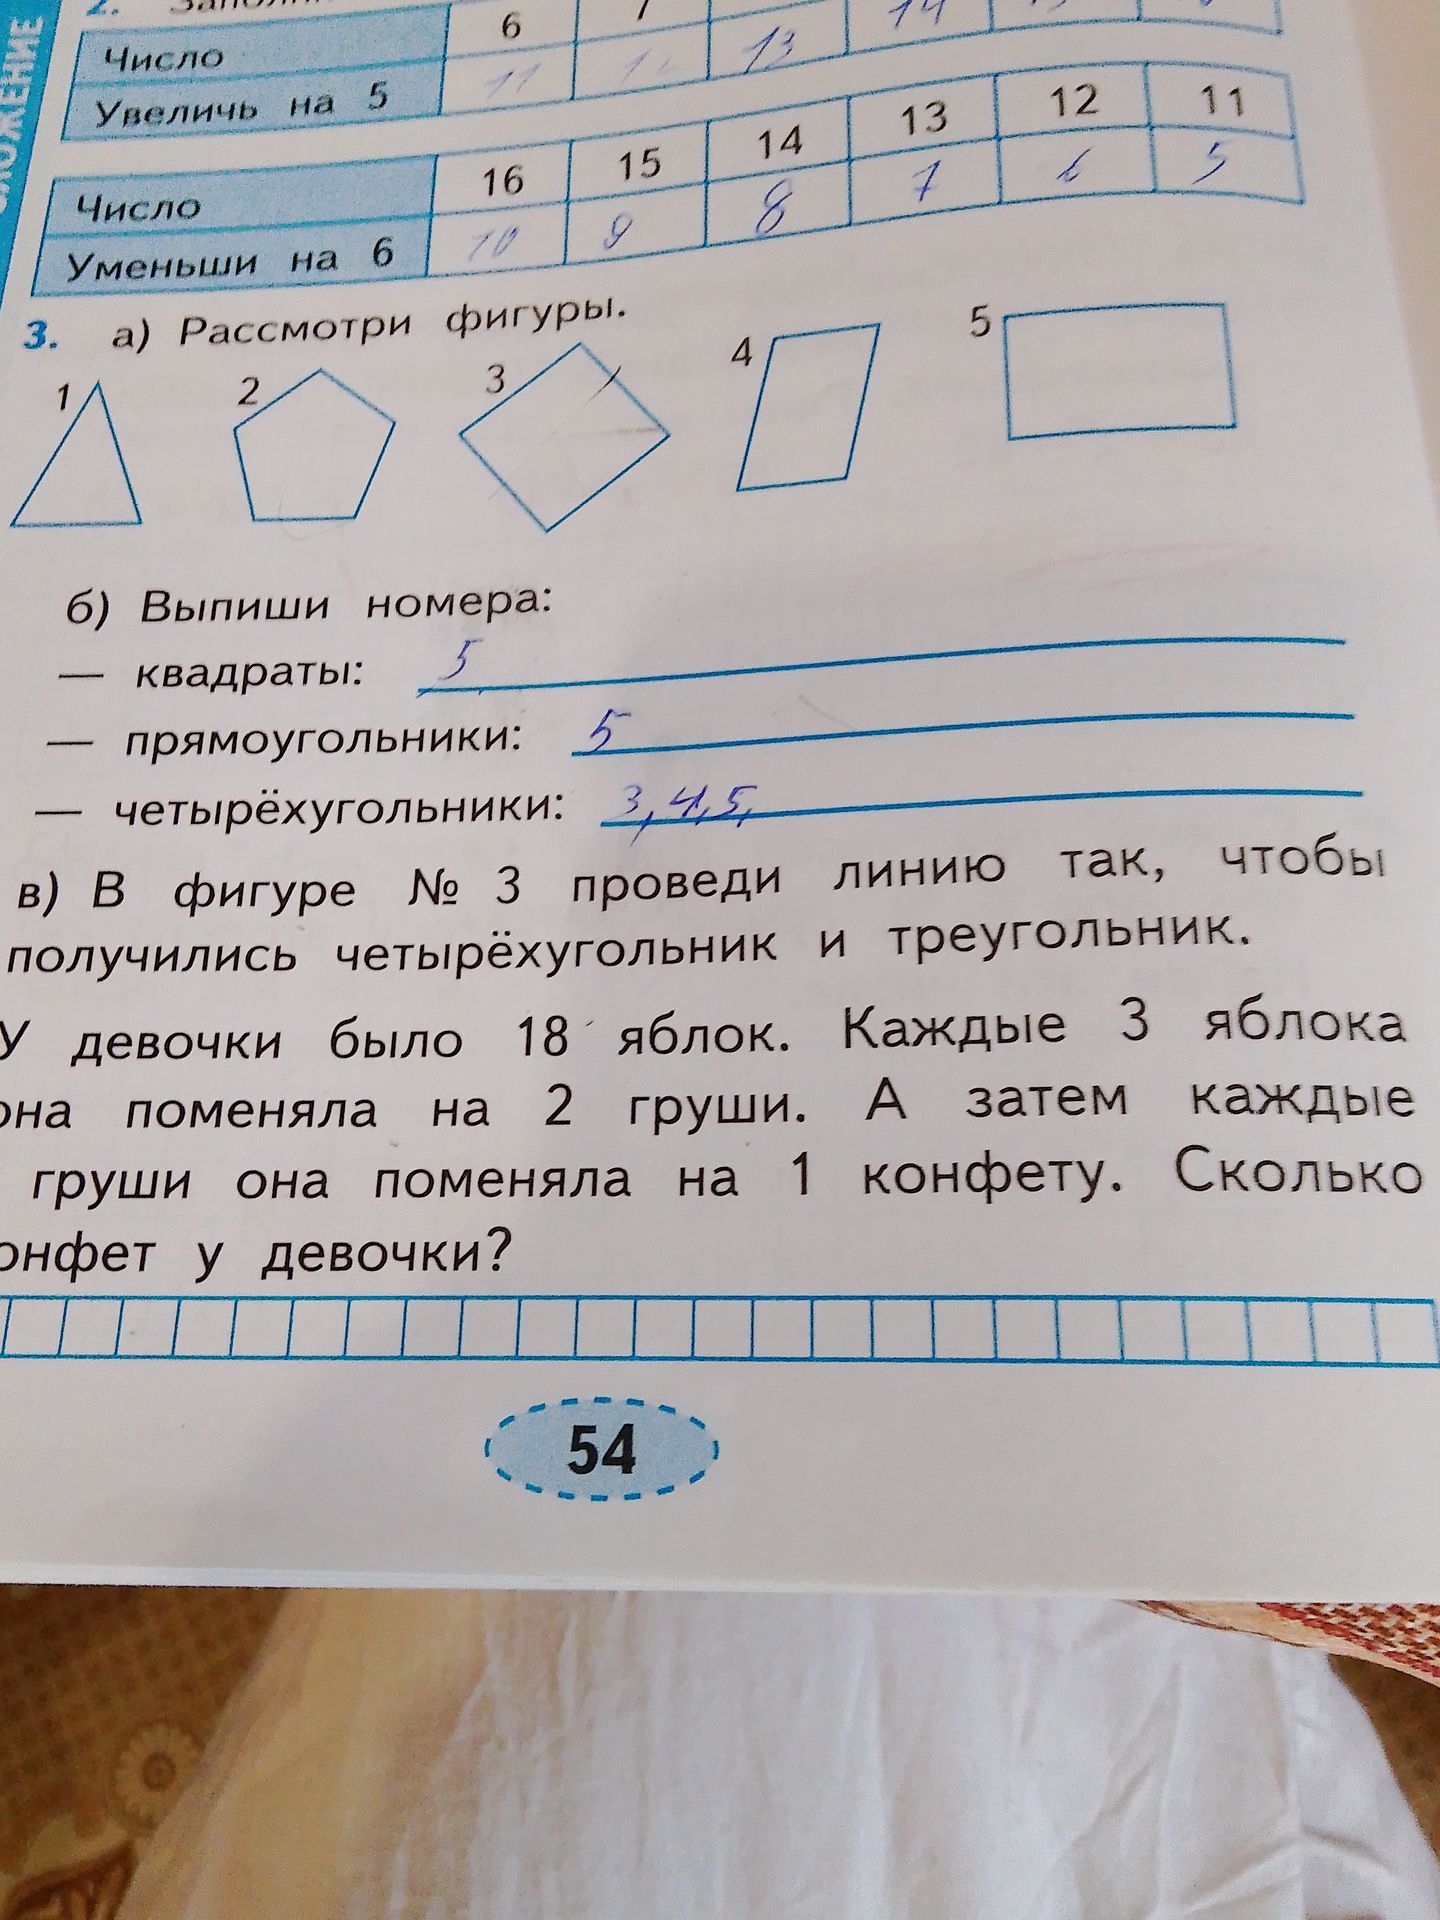 2.
Число 6 7
Увеличь на 5 11 13 14
Число 16 15 14 13 12 11
Уменьши на 6 10 9 8 7 6 5
3. а) Рассмотри фигуры.
1 2 3 4 5
б) Выпиши номера:
— квадраты: 5
— прямоугольники: 5
— четырёхугольники: 3, 4, 5,
в) В фигуре № 3 проведи линию так, чтобы
получились четырёхугольник и треугольник.
У девочки было 18 яблок. Каждые 3 яблока
она поменяла на 2 груши. А затем каждые
груши она поменяла на 1 конфету. Сколько
онфет у девочки?
54